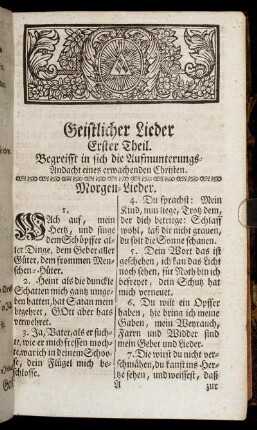 Geistlicher Lieder
Erster Theil.
Begreifft in sich die Aufmunterungs-
Andacht eines erwachenden Christen.
Morgen-Lieder.
1.
WAch auf, mein
Hertz, und singe
dem Schöpffer al-
ler Dinge, dem Geber aller
Güter, dem frommen Men-
schen-Hüter.
2. Heint als die dunckle
Schatten mich gantz umge-
ben hatten, hat Satan mein
begehret, GOtt aber hats
verwehret.
3. Ja, Vater, als er such-
te, wie er mich fressen moch-
te, war ich in deinem Schoo-
se, dein Flügel mich be-
schlosse.
4. Du sprachst: Mein
Kind, nun liege, Trotz dem,
der dich betriege: Schlaff
wohl, laß dir nicht grauen,
du solt die Sonne schauen.
5. Dein Wort das ist
geschehen, ich kan das Licht
noch sehen, für Noth bin ich
befreyet, dein Schutz hat
mich verneuet.
6. Du wilt ein Opffer
haben, hie bring ich meine
Gaben, mein Weyrauch,
Farrn und Widder sind
mein Gebet und Lieder.
7. Die wirst du nicht ver-
schmähen, du kanst ins Her-
tze sehen, und weissest, daß
A zur